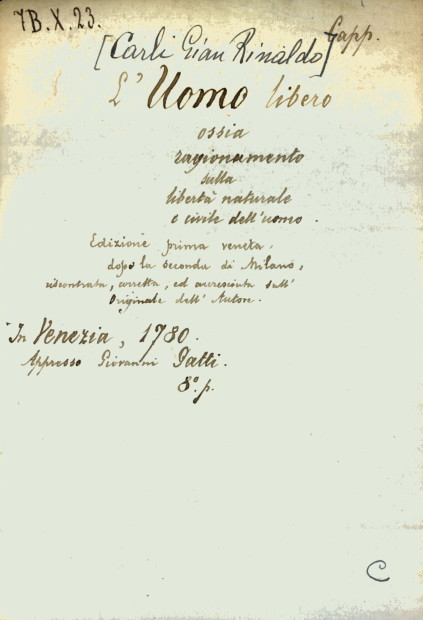 7B.X.23.
[Carli Gian Rinaldo]
L' Uomo libero
ossia
ragionamento
sulla
libertà naturale
e civile dell'uomo.
Edizione prima veneta,
dopo la seconda di Milano,
riscontrata, corretta, ed accresciuta sull'
Originale dell' Autore.
In Venezia, 1780.
Appresso Giovanni Gatti.
8º. p.
C